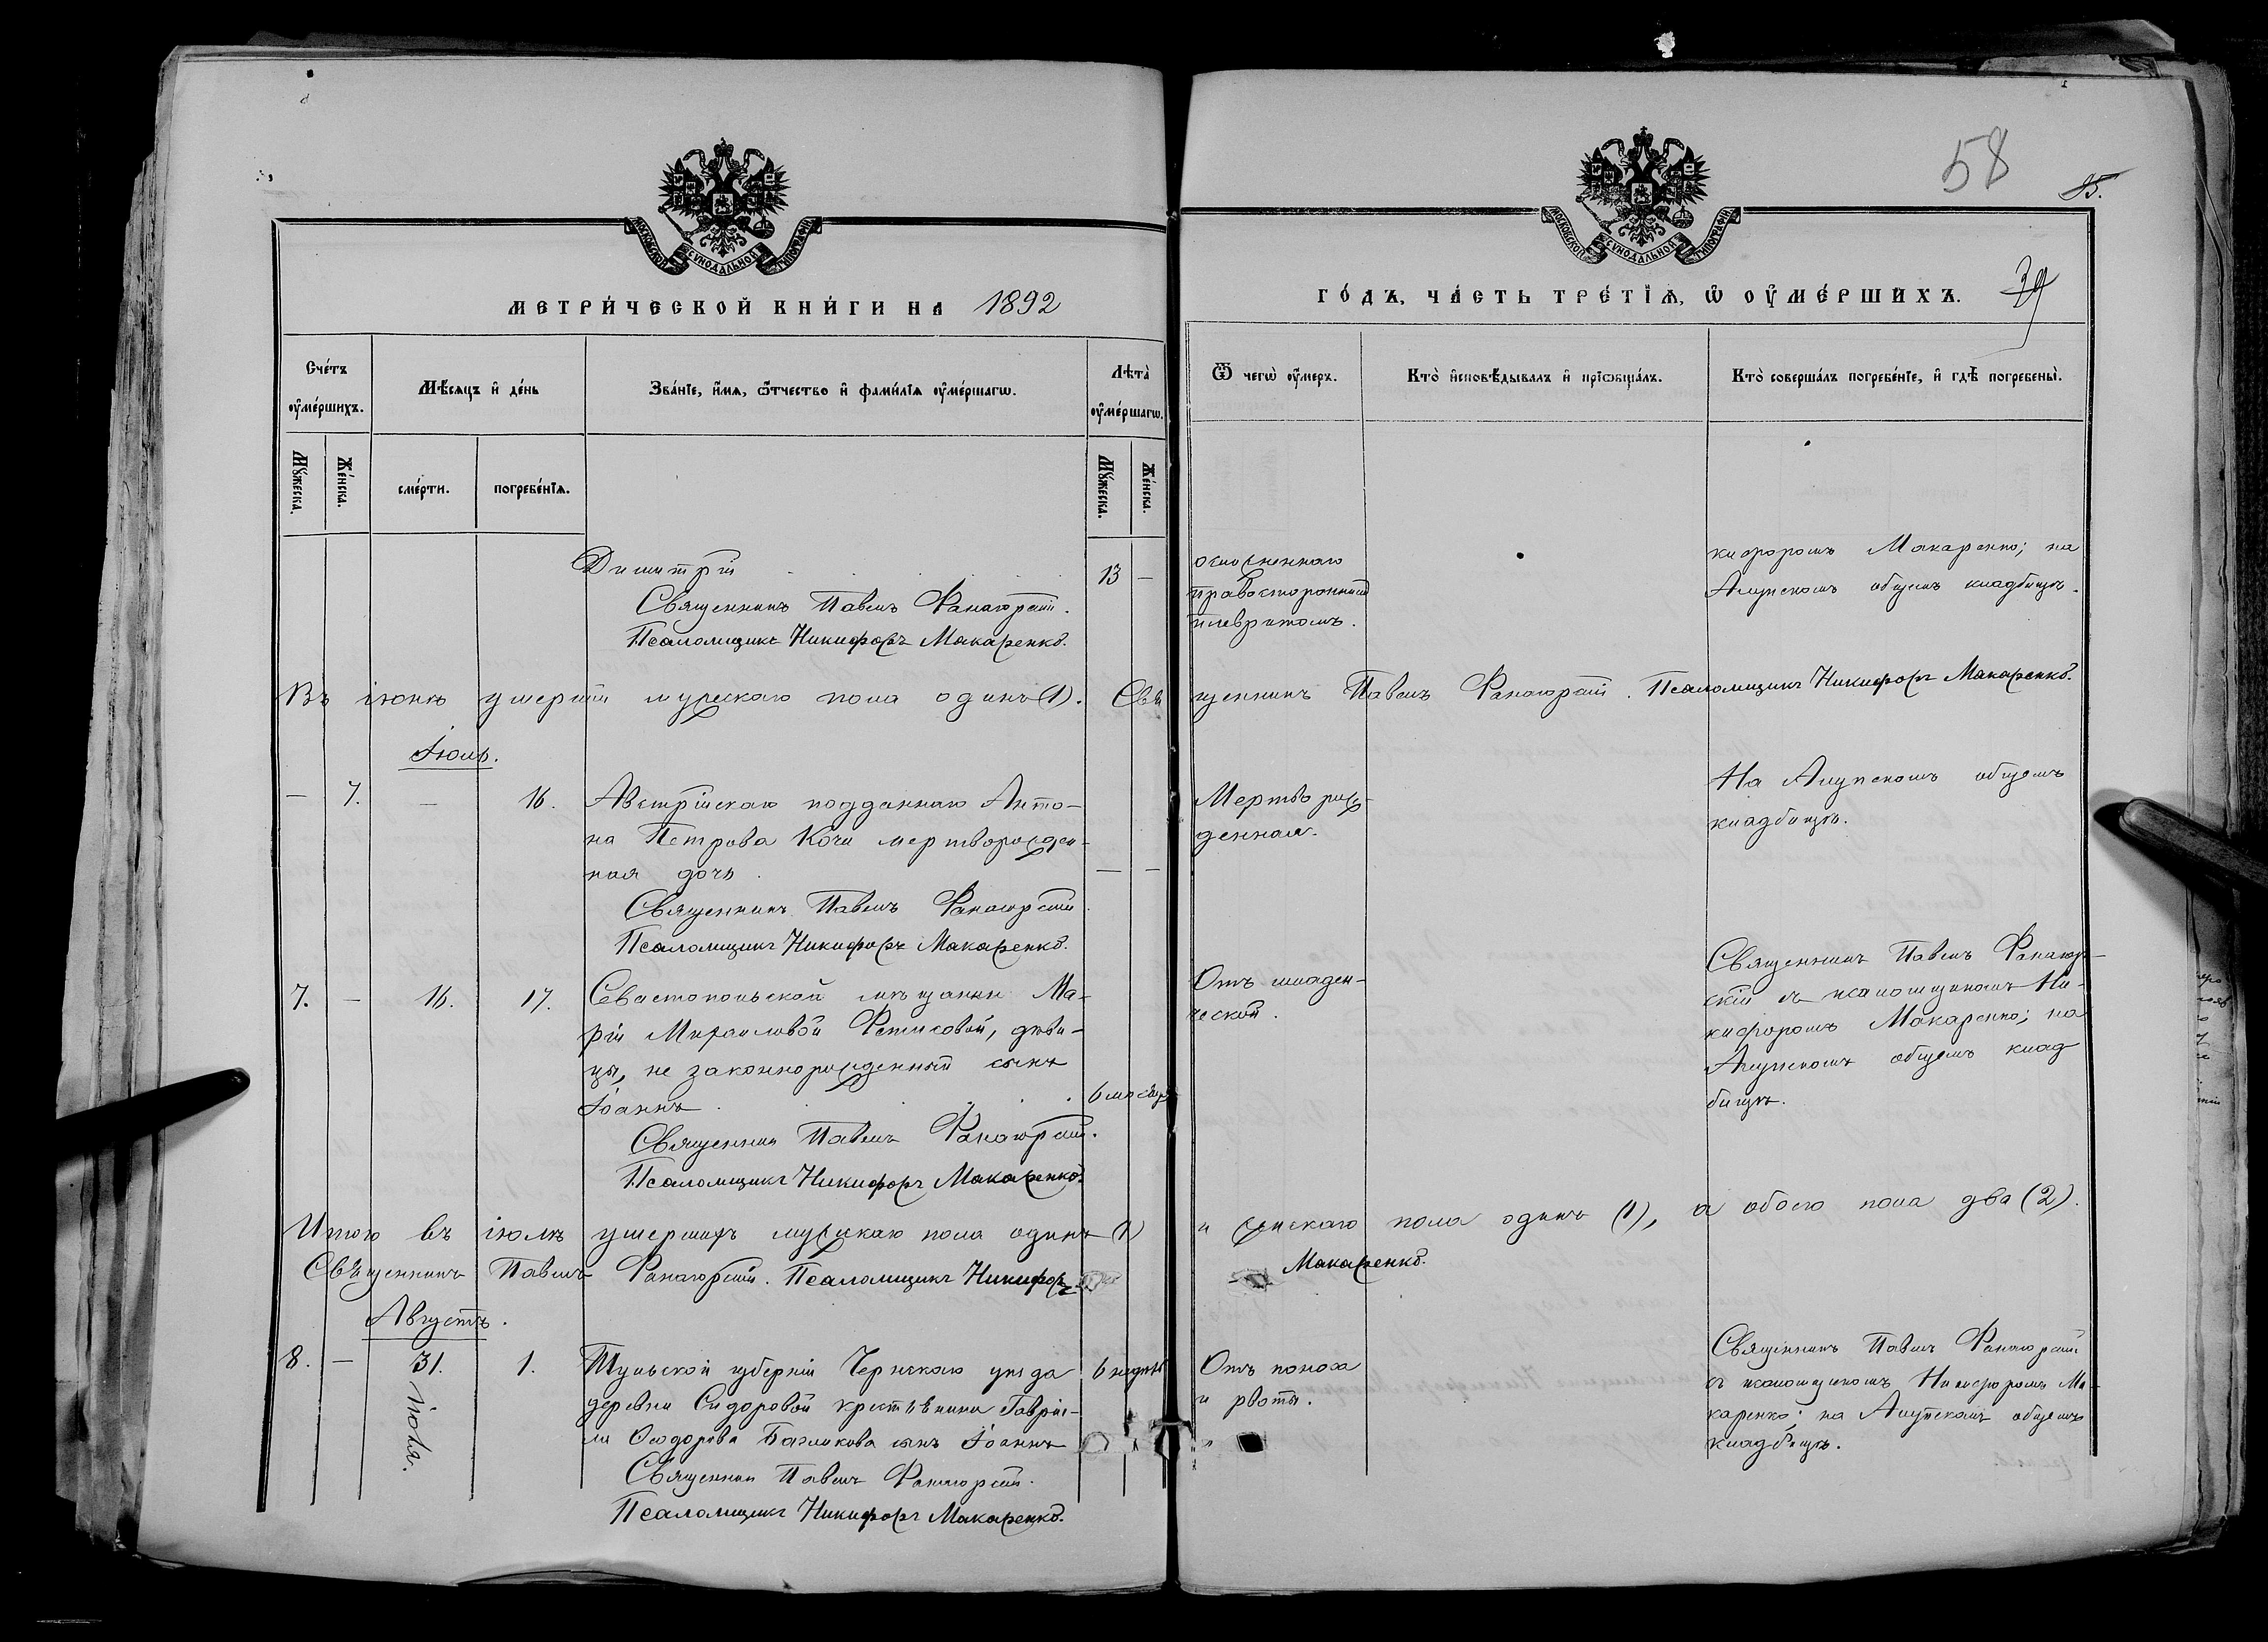 58
85.
39
МОСКОВСКОЙ СѴНОДАЛЬНОЙ ТИПОГРАФІИ
МОСКОВСКОЙ СѴНОДАЛЬНОЙ ТИПОГРАФІИ
МЕТРИ́ЧЕСКОЙ КНИ́ГИ НА 1892
ГО́ДЪ, ЧА́СТЬ ТРЕ́ТІѦ, Ѿ ОУ҆МЕ́РШИХЪ.
Сче́тъ оу҆ме́ршихъ.
Мѣ́сяцъ и҆ де́нь
Зва́нїе, и҆́мя, ѻ҆́тчество и҆ фами́лїя оу҆ме́ршагѡ.
Лѣта̀ оу҆ме́ршагѡ.
Ѿ чегѡ̀ оу҆́меръ.
Кто̀ и҆сповѣ́дывалъ и҆ прїѡбща́лъ.
Кто̀ соверша́лъ погребе́нїе, и҆ гдѣ̀ погребены̀.
Мꙋ́жеска.
Же́нска.
сме́рти.
погребе́нїѧ.
Мꙋ́жеска.
Же́нска.
Димитрій 13 —
Священникъ Павелъ Фанагорскій.
Псаломщикъ Никифоръ Макаренко.
правосторонним
плевритомъ.
кифоромъ Макаренко; на
Алупскомъ общемъ кладбищѣ.
Въ іюнѣ умерли мужескаго пола одинъ (1). Священникъ Павелъ Фанагорскій. Псаломщикъ Никифоръ Макаренко.
Іюль.
— 7. — 16. Австрійскаго подданнаго Анто-
на Петрова Кочи мертворожден-
ная дочь. — —
Священникъ Павелъ Фанагорскій.
Псаломщикъ Никифоръ Макаренко.
Мертворож-
денная.
На Алупскомъ общемъ
кладбищѣ.
7. — 16. 17. Севастопольской мѣщанки Ма-
ріи Михаиловой Фетисовой, дѣви-
цы, не законнорожденный сынъ
Іоаннъ . . . . 6 мѣсяц
Священникъ Павелъ Фанагорскій.
Псаломщикъ Никифоръ Макаренко.
Отъ младен-
ческой.
Священникъ Павелъ Фанагор-
скій съ псаломщикомъ Ни-
кифоромъ Макаренко; на
Алупскомъ общемъ клад
бищѣ.
Итого въ іюлѣ умершихъ мужскаго пола одинъ (1) и женскаго пола одинъ (1), а обоего пола два (2).
Священникъ Павелъ Фанагорскій. Псаломщикъ Никифоръ Макаренко.
Августъ.
8. — 31. 1. Тульской губерніи Чернскаго уѣзда 6 недѣль
Іюля.
деревни Сидоровой крестьянина Гаврі-
ла Ѳеодорова сынъ Іоаннъ
Священникъ Павелъ Фанагорскій.
Псаломщикъ Никифоръ Макаренко.
Отъ поноса
и рвоты.
Священникъ Павелъ Фанагорскій
съ псаломщикомъ Никифоромъ Ма-
каренко; на Алупскомъ общемъ
кладбищѣ.